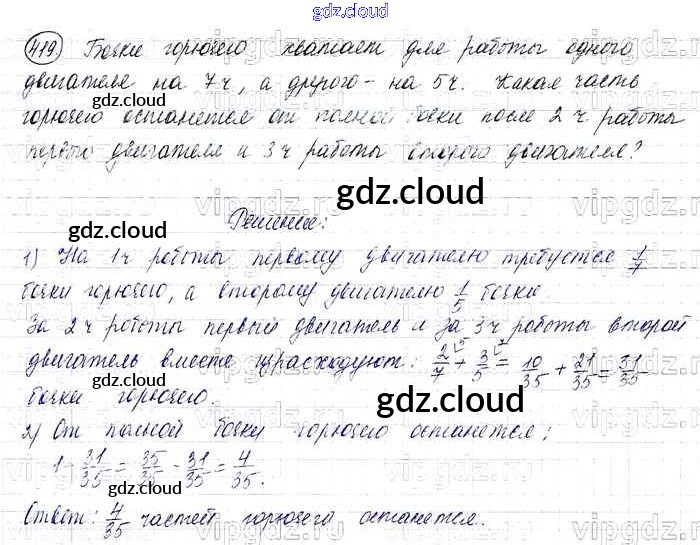 gdz.cloud
419. Бочки горючего хватает для работы одного
двигателя на 7ч, а другого - на 5ч. Какая часть
gdz.cloud
горючего останется от полной бочки после 2ч работы
первого двигателя и 3ч работы второго двигателя?
gdz.cloud
vipgdz
Решение:
1) На 1ч работы первому двигателю требуется 1/7
бочки горючего, а второму двигателю 1/5 бочки
gdz.cloud
За 2ч работы первый двигатель и за 3ч работы второй
двигатель вместе израсходуют: 2/7 + 3/5 = 10/35 + 21/35 = 31/35
gdz.cloud
бочки горючего.
gdz.cloud
2) От полной бочки горючего останется:
1 - 31/35 = 35/35 - 31/35 = 4/35.
gdz.cloud
Ответ: 4/35 частей горючего останется.
gdz.cloud